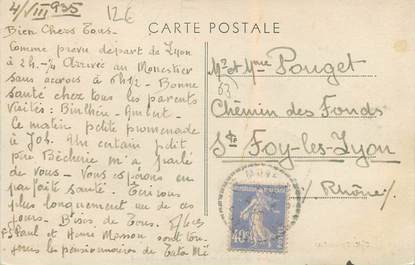 4/VIII 935
12€
CARTE POSTALE
Bien Chers Tous.
Comme prévu départ de Lyon
à 2h. Arrivée au Monestier
sans accrocs à 6h12 - Bonne
santé chez tous les parents
visités:
Ce matin petite promenade
à Job. Un certain petit
père Bècherie m'a parlé
de vous - Vous espérons en
parfaite santé. Écrirons
plus longuement un de ces
jours. Bises de Tous.
Paul et Henri Masson sont tou-
jours les pensionnaires de Tata
Mr et Mme Pouget
63
Chemin des Fonds
Ste Foy-les-Lyon
(Rhône)
40c